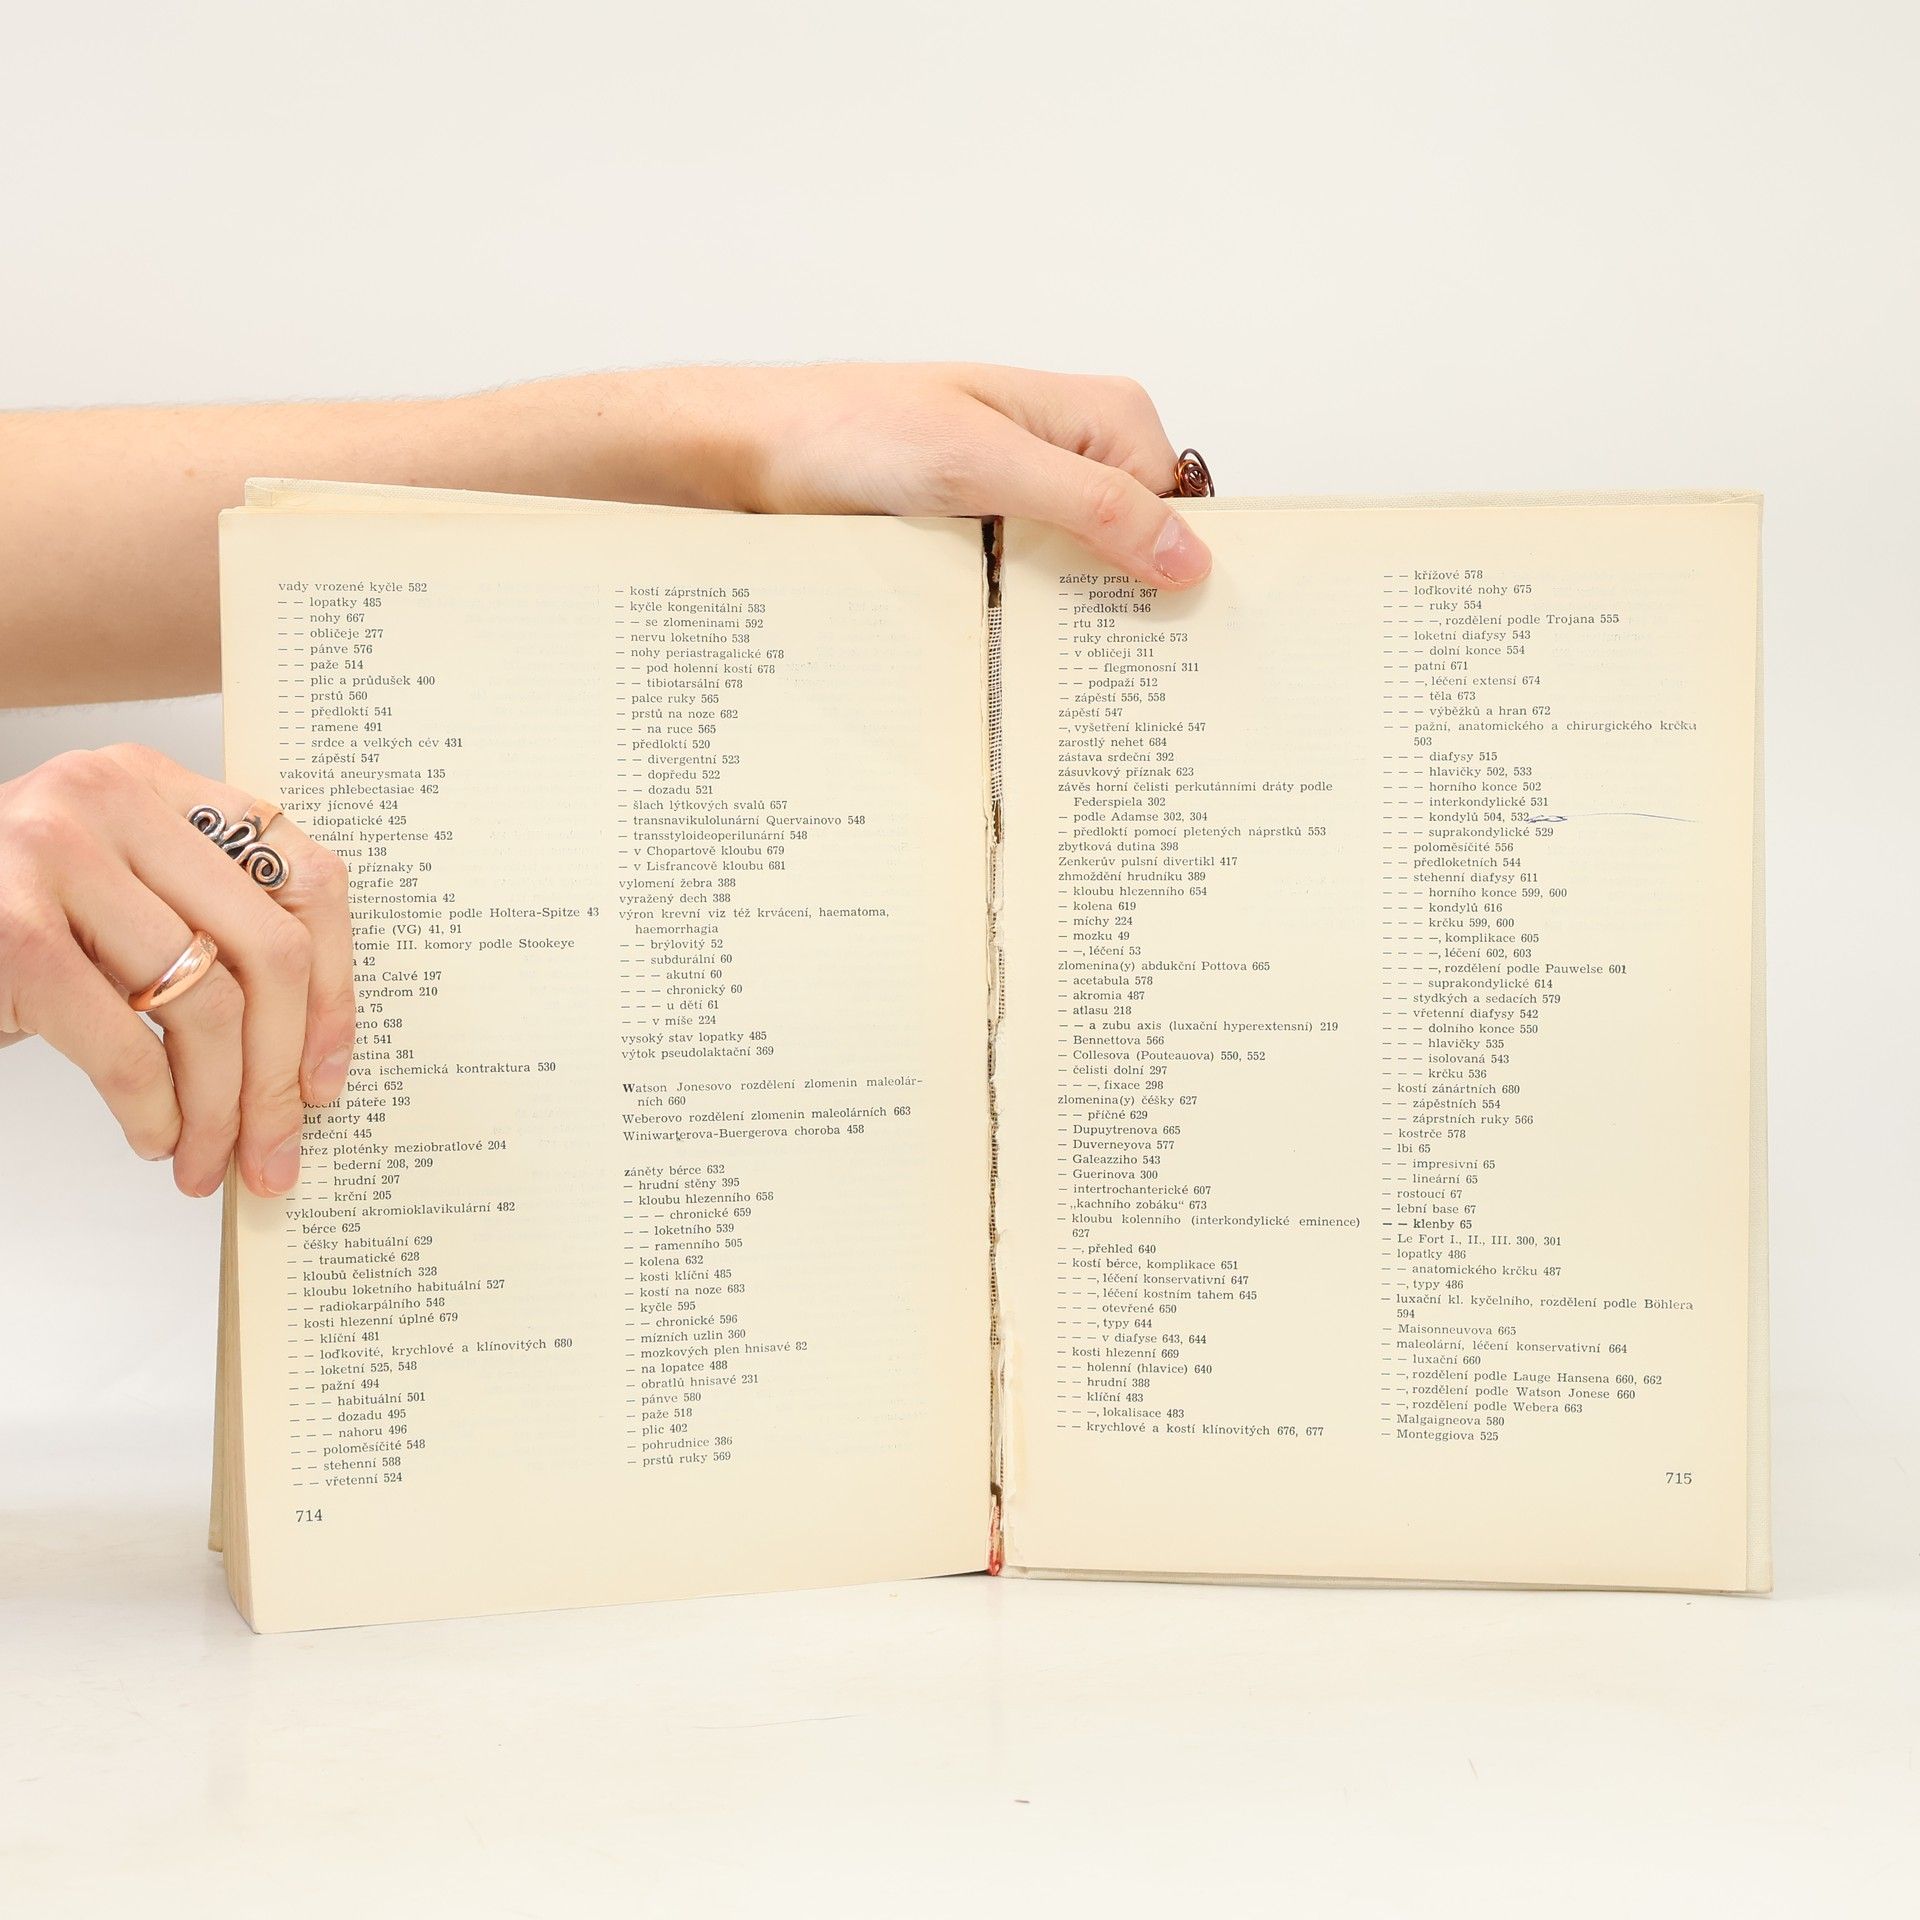 vady vrozené kyčle 582
— — lopatky 485
— — nohy 667
— — obličeje 277
— — pánve 576
— — paže 514
— — plic a průdušek 400
— — prstů 560
— — předloktí 541
— — ramene 491
— — srdce a velkých cév 431
— — zápěstí 547
vakovitá aneurysmata 135
varices phlebectasiae 462
varixy jícnové 424
— idiopatické 425
renální hypertense 452
138
příznaky 50
287
cisternostomia 42
aurikulostomie podle Holtera-Spitze 43
(VG) 41, 91
III. komory podle Stookeye
42
Calvé 197
syndrom 210
75
638
541
381
ischemická kontraktura 530
bérci 652
páteře 193
aorty 448
srdeční 445
ploténky meziobratlové 204
— — bederní 208, 209
— — hrudní 207
— — — krční 205
vykloubení akromioklavikulární 482
— bérce 625
— čéšky habituální 629
— — traumatické 628
— kloubů čelistních 328
— kloubu loketního habituální 527
— — radiokarpálního 548
— kosti hlezenní úplné 679
— — klíční 481
— — loďkovité, krychlové a klínovitých 680
— — loketní 525, 548
— — pažní 494
— — — habituální 501
— — — dozadu 495
— — — nahoru 496
— — poloměsíčité 548
— — stehenní 588
— — vřetenní 524
714
— kostí záprstních 565
— kyčle kongenitální 583
— — se zlomeninami 592
— nervu loketního 538
— nohy periastragalické 678
— — pod holenní kostí 678
— — tibiotarsální 678
— palce ruky 565
— prstů na noze 682
— — na ruce 565
— předloktí 520
— — divergentní 523
— — dopředu 522
— — dozadu 521
— šlach lýtkových svalů 657
— transnavikulolunární Quervainovo 548
— transstyloideoperilunární 548
— v Chopartově kloubu 679
— v Lisfrancově kloubu 681
vylomení žebra 388
vyražený dech 388
výron krevní viz též krvácení, haematoma,
haemorrhagia
— — brýlovitý 52
— — subdurální 60
— — — akutní 60
— — — chronický 60
— — — u dětí 61
— — v míše 224
vysoký stav lopatky 485
výtok pseudolaktační 369
Watson Jonesovo rozdělení zlomenin maleolár-
ních 660
Weberovo rozdělení zlomenin maleolárních 663
Winiwarterova-Buergerova choroba 458
záněty bérce 632
— hrudní stěny 395
— kloubu hlezenního 658
— — — chronické 659
— — loketního 539
— — ramenního 505
— kolena 632
— kosti klíční 485
— kostí na noze 683
— kyčle 595
— — chronické 596
— mízních uzlin 360
— mozkových plen hnisavé 82
— na lopatce 488
— obratlů hnisavé 231
— pánve 580
— paže 518
— plic 402
— pohrudnice 386
— prstů ruky 569
záněty prsu
— — porodní 367
— předloktí 546
— rtu 312
— ruky chronické 573
— v obličeji 311
— — — flegmonosní 311
— — podpaží 512
— zápěstí 556, 558
zápěstí 547
—, vyšetření klinické 547
zarostlý nehet 684
zástava srdeční 392
zásuvkový příznak 623
závěs horní čelisti perkutánními dráty podle
Federspiela 302
— podle Adamse 302, 304
— předloktí pomocí pletených náprstků 553
zbytková dutina 398
Zenkerův pulsní divertikl 417
zhmoždění hrudníku 389
— kloubu hlezenního 654
— kolena 619
— míchy 224
— mozku 49
— —, léčení 53
zlomenina(y) abdukční Pottova 665
— acetabula 578
— akromia 487
— atlasu 218
— — a zubu axis (luxační hyperextensní) 219
— Bennettova 566
— Collesova (Pouteauova) 550, 552
— čelisti dolní 297
— — —, fixace 298
zlomenina(y) čéšky 627
— — příčné 629
— Dupuytrenova 665
— Duverneyova 577
— Galeazziho 543
— Guerinova 300
— intertrochanterické 607
— „kachního zobáku“ 673
— kloubu kolenního (interkondylické eminence)
627
— —, přehled 640
— kostí bérce, komplikace 651
— — —, léčení konservativní 647
— — —, léčení kostním tahem 645
— — — otevřené 650
— — —, typy 644
— — — v diafyse 643, 644
— kosti hlezenní 669
— — holenní (hlavice) 640
— — hrudní 388
— — klíční 483
— — —, lokalisace 483
— — krychlové a kostí klínovitých 676, 677
— — křížové 578
— — loďkovité nohy 675
— — — ruky 554
— — — —, rozdělení podle Trojana 555
— — loketní diafysy 543
— — — dolní konce 554
— — patní 671
— — —, léčení extensí 674
— — — těla 673
— — — výběžků a hran 672
— — pažní, anatomického a chirurgického krčku
503
— — — diafysy 515
— — — hlavičky 502, 533
— — — horního konce 502
— — — interkondylické 531
— — — kondylů 504, 532
— — — suprakondylické 529
— — poloměsíčité 556
— — předloketních 544
— — stehenní diafysy 611
— — — horního konce 599, 600
— — — kondylů 616
— — — krčku 599, 600
— — — —, komplikace 605
— — — —, léčení 602, 603
— — — —, rozdělení podle Pauwelse 601
— — — suprakondylické 614
— — stydkých a sedacích 579
— — vřetenní diafysy 542
— — — dolního konce 550
— — — hlavičky 535
— — — isolovaná 543
— — — krčku 536
— kostí zánártních 680
— — zápěstních 554
— — záprstních ruky 566
— kostrče 578
— lbi 65
— — impresivní 65
— — lineární 65
— rostoucí 67
— lební base 67
— — klenby 65
— Le Fort I., II., III. 300, 301
— lopatky 486
— — anatomického krčku 487
— —, typy 486
— luxační kl. kyčelního, rozdělení podle Böhlera
594
— Maisonneuvova 665
— maleolární, léčení konservativní 664
— — luxační 660
— —, rozdělení podle Lauge Hansena 660, 662
— —, rozdělení podle Watson Jonese 660
— —, rozdělení podle Webera 663
— Malgaigneova 580
— Monteggiova 525
715